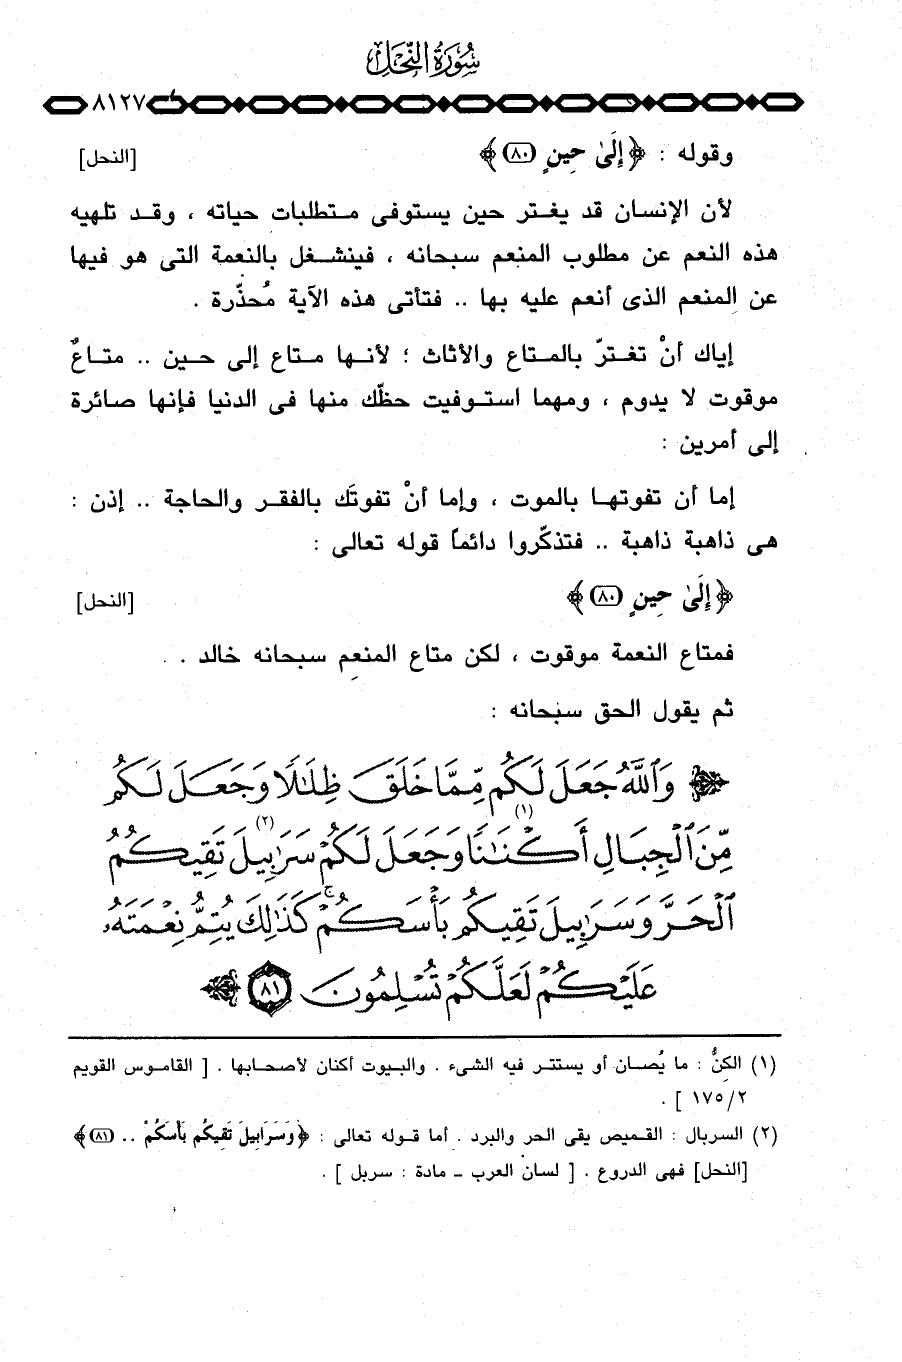 سُورَةُ النَّحْلِ
٨١٢٧
وقوله : ﴿ إِلَىٰ حِينٍ (٨٠) ﴾ [النحل]
لأن الإنسان قد يغتر حين يستوفى متطلبات حياته ، وقد تلهيه
هذه النعم عن مطلوب المنعم سبحانه ، فينشغل بالنعمة التى هو فيها
عن المنعِم الذى أنعم عليه بها .. فتأتى هذه الآية مُحذِّرة .
إياك أنْ تغترّ بالمتاع والأثاث ؛ لأنها متاع إلى حين .. متاعٌ
موقوت لا يدوم ، ومهما استوفيت حظّك منها فى الدنيا فإنها صائرة
إلى أمرين :
إما أن تفوتها بالموت ، وإما أنْ تفوتَك بالفقر والحاجة .. إذن :
هى ذاهبة ذاهبة .. فتذكّروا دائماً قوله تعالى :
﴿ إِلَىٰ حِينٍ (٨٠) ﴾ [النحل]
فمتاع النعمة موقوت ، لكن متاع المنعِم سبحانه خالد .
ثم يقول الحق سبحانه :
﴿ وَٱللَّهُ جَعَلَ لَكُم مِّمَّا خَلَقَ ظِلَٰلًا وَجَعَلَ لَكُم
مِّنَ ٱلْجِبَالِ أَكْنَٰنًا (١) وَجَعَلَ لَكُمْ سَرَٰبِيلَ (٢) تَقِيكُمُ
ٱلْحَرَّ وَسَرَٰبِيلَ تَقِيكُم بَأْسَكُمْ ۚ كَذَٰلِكَ يُتِمُّ نِعْمَتَهُۥ
عَلَيْكُمْ لَعَلَّكُمْ تُسْلِمُونَ (٨١) ﴾
(١) الكِنُّ : ما يُصان أو يستتر فيه الشىء . والبيوت أكنان لأصحابها . [ القاموس القويم
١٧٥/٢ ] .
(٢) السربال : القميص يقى الحر والبرد . أما قوله تعالى : ﴿ وَسَرَابِيلَ تَقِيكُم بَأْسَكُمْ .. (٨١) ﴾
[النحل] فهى الدروع . [ لسان العرب - مادة : سربل ] .